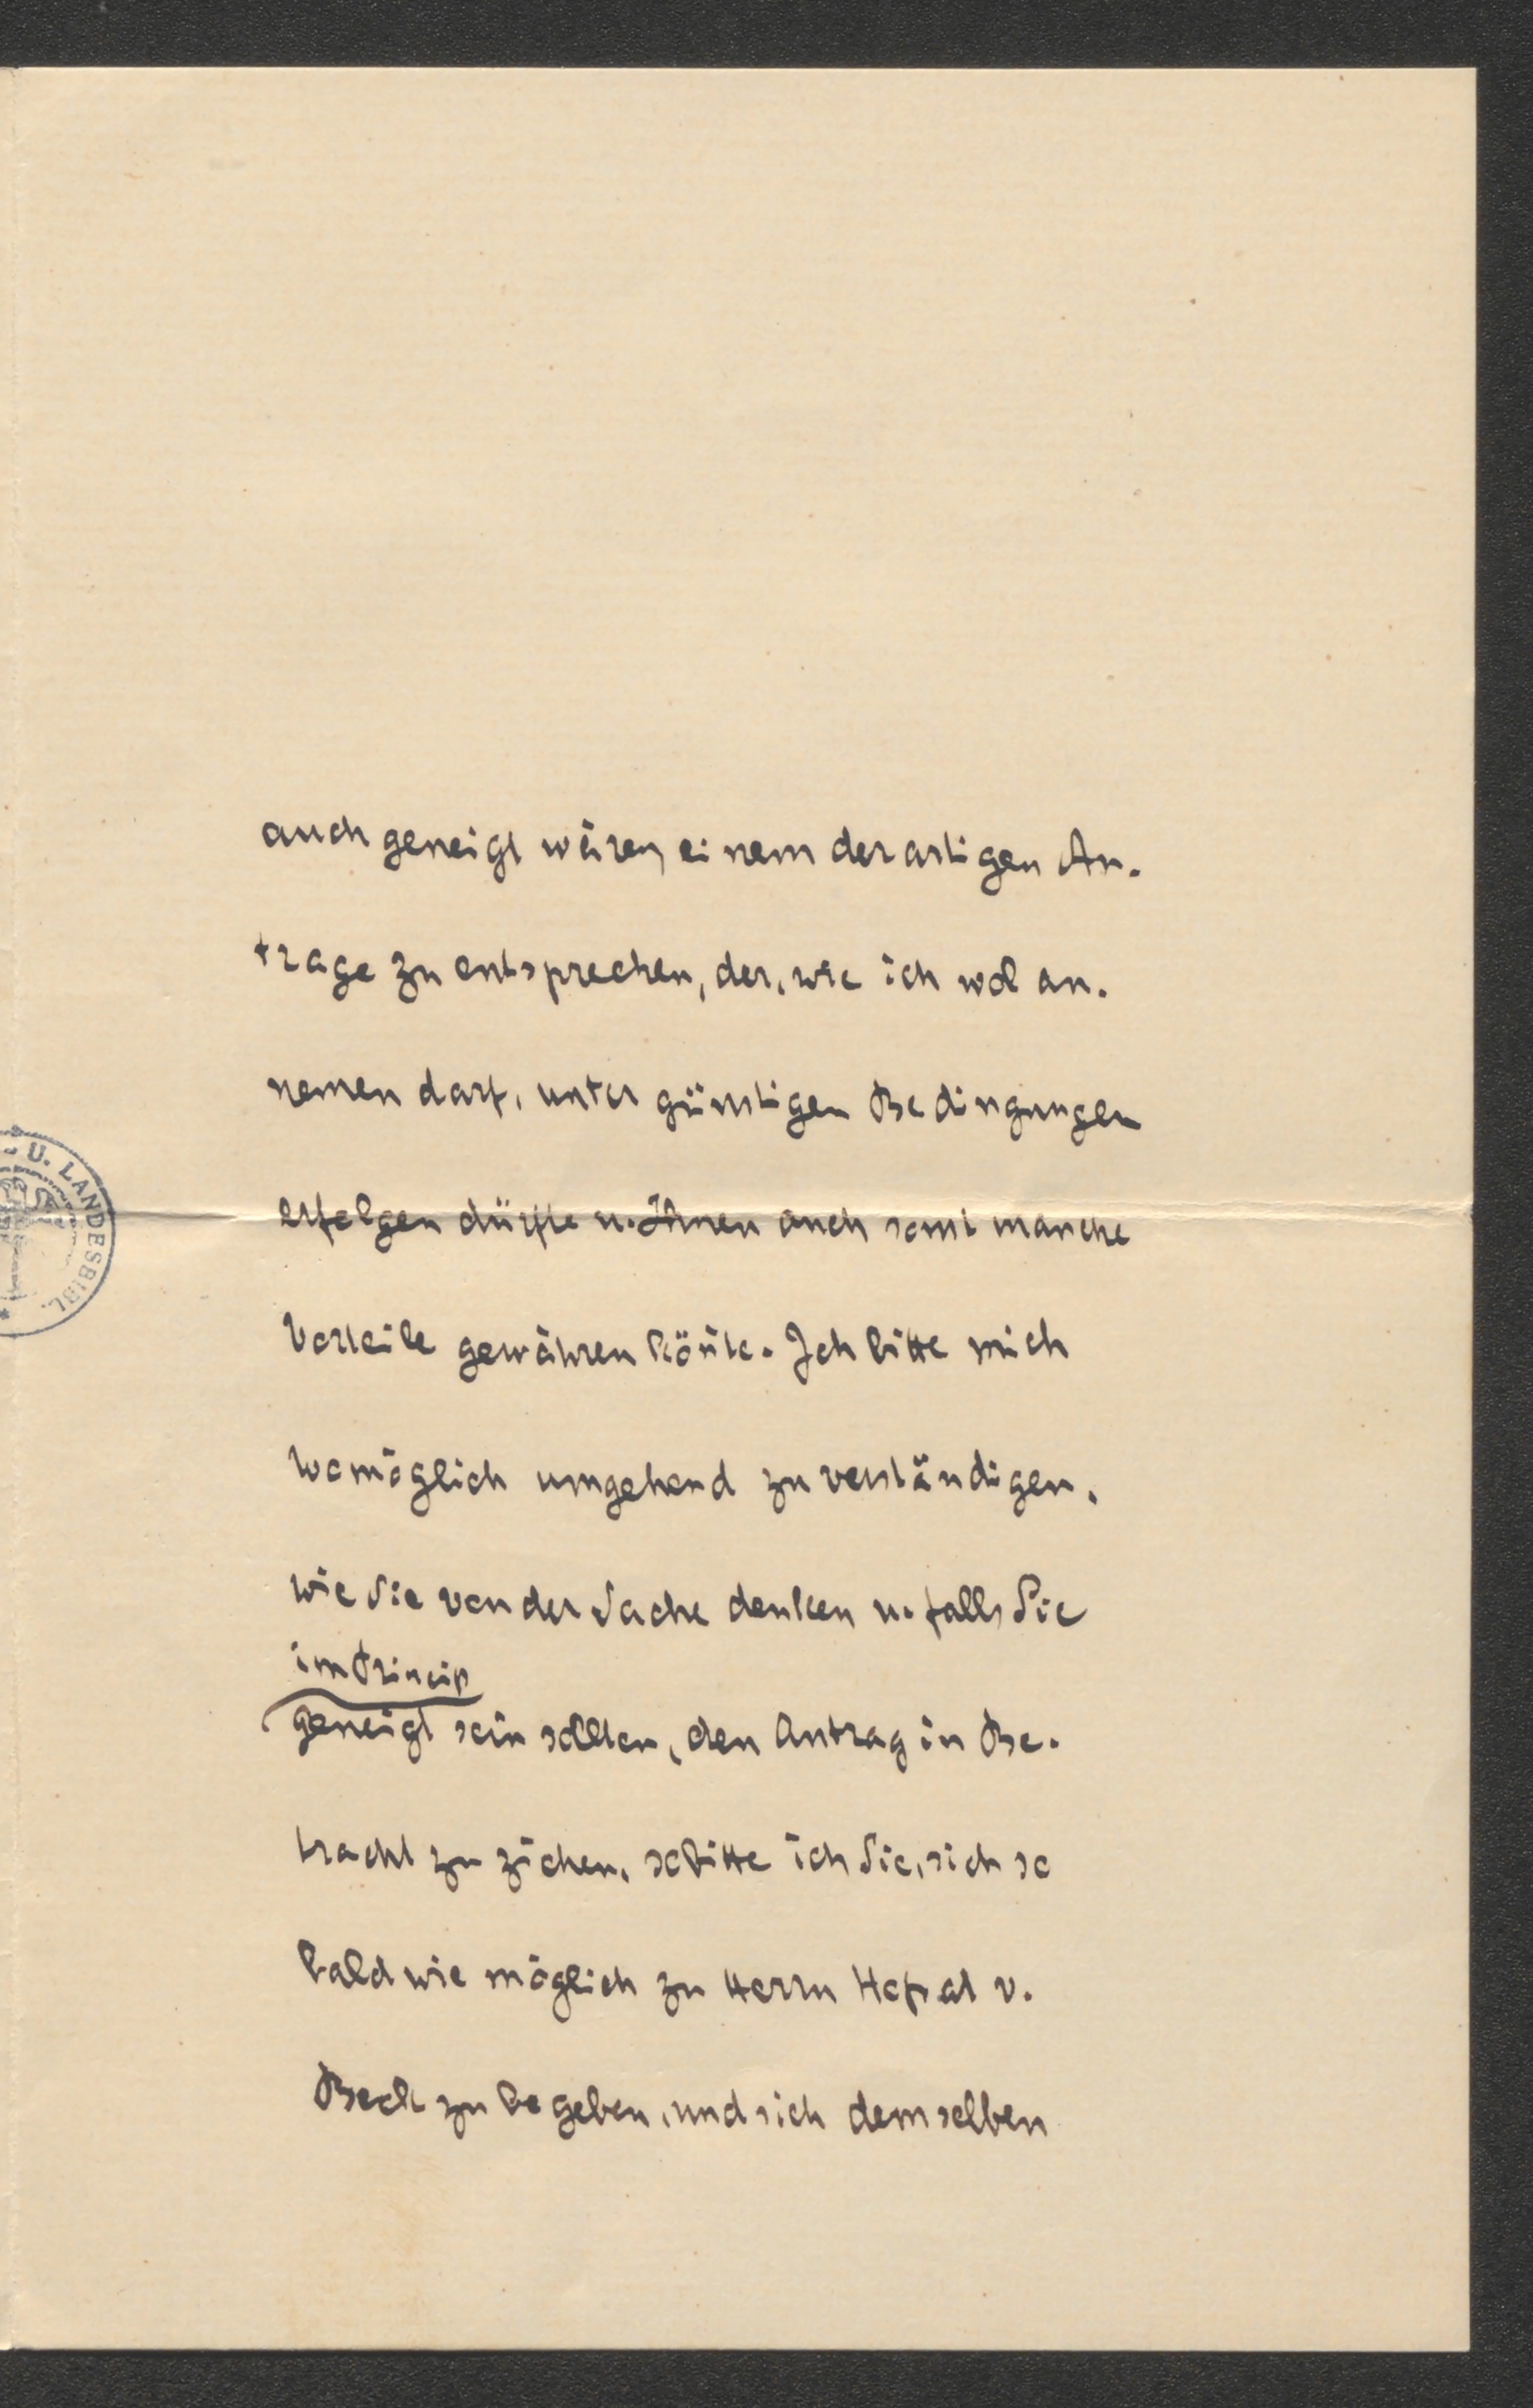 auch geneigt wären einem derartigen An-
trage zu entsprechen, der, wie ich wol an-
nemen darf, unter günstigen Bedingungen
erfolgen dürfte u. Ihnen auch sonst manche
U. LANDESBIBL.
Vorteile gewähren kön̄te. Ich bitte mich
womöglich umgehend zu verständigen,
wie Sie von der Sache denken u. falls Sie
im Princip
geneigt sein sollten, den Antrag in Be-
tracht zu ziehen, so bitte ich Sie, sich so
bald wie möglich zu Herrn Hofrat v.
Beck zu begeben, und sich demselben